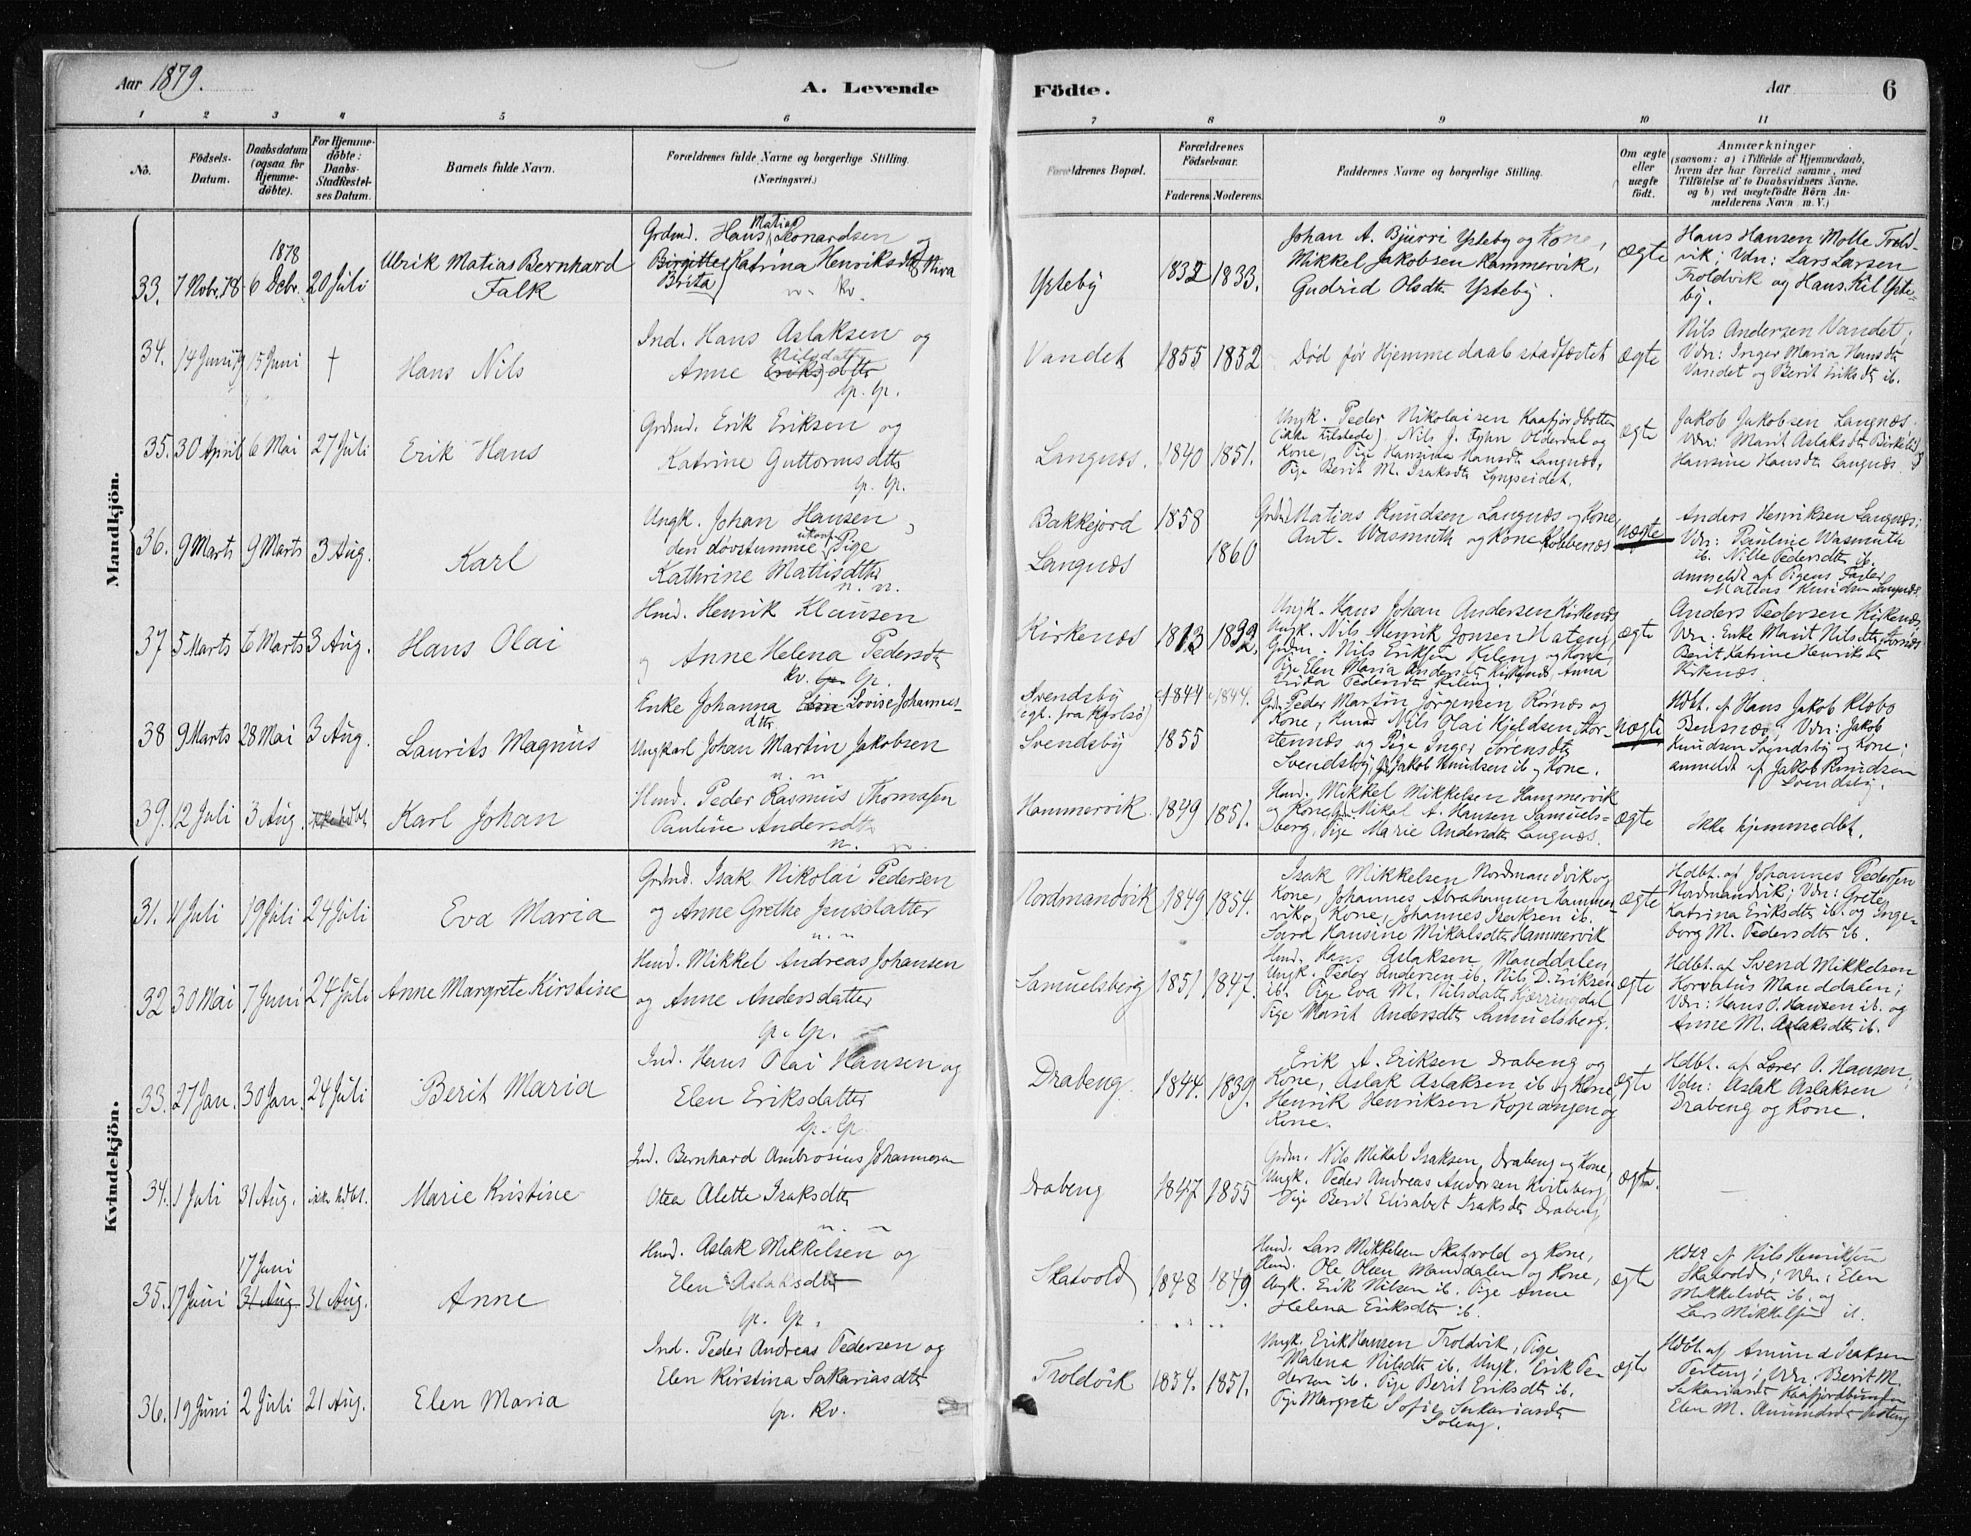 Aar 1879.
A. Levende
Födte.
Aar
6
1 2 3 4 5 6 7 8 9 10 11
No.
Födsels-
Datum.
Daabsdatum
(ogsaa for
Hjemme-
döbte).
For Hjemme-
döbte:
Daabs-
Stadfæstel-
ses Datum.
Barnets fulde Navn.
Forældrenes fulde Navne og borgerlige Stilling.
(Næringsvei.)
Forældrenes Bopæl.
Forældrenes
Födselsaar.
Faderens. Moderens.
Faddernes Navne og borgerlige Stilling.
Om ægte
eller
uægte
födt.
Anmærkninger
(saasom: a) i Tilfælde af Hjemmedaab,
hvem der har forrettet samme, med
Tilföielse af to Daabsvidners Navne.
og b) ved uægtefödte Börn An-
melderens Navn m. V.)
Mandkjön.
33. 7 Nobr. 78 1878 6 Debr. 20 Juli
Ulrik Matias Bernhard
Falk
Grdmd. Hans Matias Leonardsen og
Birgitte Katrina Henriksdtr
Brita
n. Kv.
Ysteby 1832 1833.
Johan A. Bjürri Ysteby og Kone,
Mikkel Jakobsen Kammervik,
Gudrid Olsdtr Ysteby.
Ægte
Hans Hansen Molle Trold-
vik; Vdn: Lars Larsen
Troldvik og Hans Kil Yste-
by.
34. 14 Juni 79 15 Juni †
Hans Nils
Ind. Hans Aslaksen og
Anne Nilsdatt Eriksdttr
lp. lp.
Vandet 1855 1852
Död för Hjemmedaab stadfæstet
Ægte
Nils Andersen Vandet;
Vdn: Inger Maria Hansdtr
Vandet og Berit Eriksdtr ib.
35. 30 April 6 Mai 27 Juli
Erik Hans
Grdmd. Erik Eriksen og
Katrine Guttormsdttr
lp. lp.
Langnæs. 1840 1851.
Ungk. Peder Nikolaisen Kaafjordbotten
(ikke tilstede), Nils J. Olderdal og
Kone, Pige Hansina Hansdtr Langnæs,
Pige Berit M. Isaksdtr Lyngseidet.
Ægte
Jakob Jakobsen Langnæs.
Vdn: Marit Aslaksdtr
Hansine Hansdtr Langnæs.
36. 9 Marts 9 Marts 3 Aug.
Karl
Ungk. Johan Hansen,
den døvstumme ukonf. Pige
Kathrine Mattisdttr
n. n.
Bakkejord 1858
Langnæs 1860
Grdmd Matias Knudsen Langnæs og Kone,
Ant. Wasmuth og Kone Kobbenæs
uægte
Anders Henriksen Langnæs;
Vdn: Pauline Wasmuth
ib. Nille Pedersdtr ib.
anmeldt af Pigens Fader
Mattias Knudsen Langnæs.
37 5 Marts 6 Marts 3 Aug.
Hans Olai
Hmd. Henrik Klausen
og Anne Helena Pedersdtr
kv. lp. lp.
Kirkenæs 1813 1832.
Ungk. Hans Johan Andersen Kirkenæs
Ungk. Nils Henrik Jonsen
Grdm. Nils Eriksen Kileng og Kone,
Pige Elen Maria Andersdtr Kirkenæs, Anna
Erika Pedersdtr Kileng.
Ægte
Anders Pedersen Kirkenæs,
Vdn: Enke Marit Nilsdtr Stornæs
Berit Katrine Henriksdtr
Kirkenæs.
38 9 Marts 28 Mai 3 Aug.
Laurits Magnus
Enke Johanna Lovise Johannes-
dttr
Ungkarl Johan Martin Jakobsen
n. n
Svendsby 1844 1844.
egl. fra Karlsö
Svendsby 1855
Gd. Peder Martin Jörgensen Rörnæs og
Kone, Hmd Nils Olai Kjeldsen Stor-
stennæs og Pige Inger Sörensdtr
Svendsby, Jakob Knudsen ib og Kone.
uægte
Hdbt. af Hans Jakob Klæbo
Bensnæs, Vdn: Jakob
Knudsen Svendsby og Kone;
anmeldt af Jakob Knudsen
Svendsby.
39. 12 Juli 3 Aug. ikke hdbt.
Karl Johan
Hmd. Peder Rasmus Thomasen
Pauline Andersdtr
n. n.
Hammervik 1849 1851.
Hmd. Mikkel Mikkelsen Hammervik
og Kone, Mikal A. Hansen Samuels-
berg. Pige Marie Andersdtr Langnæs.
ægte
Ikke hjemmedbt.
Kvindekjön.
31. 11 Juli 19 Juli 24 Juli
Eva Maria
Grdmd. Isak Nikolai Pedersen
og Anne Grethe Jensdatter
n. n
Nordmandvik 1849 1854.
Isak Mikkelsen Nordmandvik og
Kone, Johannes Abrahamsen Hammer-
vik, Kone, Johannes Isaksen ib.
Sara Hansine Mikalsdtr Hammervik
ægte
Hdbt. af Johannes Pedersen
Nordmandvik; Vdn: Grete
Katrina Eriksdtr ib. og Inge-
borg M. Pedersdtr ib.
32 30 Mai 7 Juni 24 Juli
Anne Margrete Kirstine
Hmd. Mikkel Andreas Johansen
og Anne Andersdatter
lp. lp.
Samuelsberg 1851 1847.
Hmd. Hans Aslaksen Manddalen,
Ungk. Peder Andersen ib. Nils D. Eriksen
ib. Pige Eva M. Nilsdatter Kjerringdal
Pige Marit Andersdtr Samuelsberg.
ægte
Hdbt. af Svend Mikkelsen
Horvatus Manddalen;
Vdn: Hans O. Hansen ib. og
Anne M. Aslaksdtr ib.
33. 27 Jan. 30 Jan. 24 Juli
Berit Maria
Ind. Hans Olai Hansen og
Elen Eriksdatter
lp. lp.
Drabeng. 1844. 1839.
Erik A. Eriksen Drabeng og
Kone, Aslak Aslaksen ib og Kone,
Henrik Henriksen Kopangen og
Kone.
ægte
Hdbt. af Lærer O. Hansen;
Vdn: Aslak Aslaksen
Drabeng og Kone.
34. 1 Juli 31 Aug. ikke hdbt.
Marie Kristine
Ind. Bernhard Ambrosius Johannesen
Otea Alette Isaksdtr
n. n
Drabeng 1847 1855
Grdm. Nils Mikal Isaksen, Drabeng og Kone,
Ungk. Peder Andreas Andersen Kviteberg
Pige Berit Elisabet Isaksdtr Drabeng
ægte.
—
35. 17 Juni 17 Juni 31 Aug 31 Aug.
Anne
Hmd. Aslak Mikkelsen og
Elen Aslaksdtr
lp. lp.
Skatvold 1848 1849.
Hmd. Lars Mikkelsen Skatvold og Kone,
Hmd. Ole Olsen Manddalen og Kone,
Ungk. Erik Nilsen ib. Pige Anne
Helena Eriksdtr ib.
ægte
Hdbt af Nils Henriksen
Skatvold; Vdn: Elen
Mikkelsdtr ib. og
Lars Mikkelsen ib.
36. 19 Juni 2 Juli 21 Aug.
Elen Maria
Ind. Peder Andreas Pedersen og
Elen Kirstina Sakariasdtr
lp. Kv.
Troldvik 1854. 1851.
Ungk. Erik Hansen Troldvik, Pige
Malena Nilsdtr ib. Ungk. Erik Pe-
dersen ib. Pige Berit Eriksdtr ib.
Pige Margrete Sofie Sakariasdtr
Soleng.
ægte
Hdbt. af Amund Isaksen
Vdn. Berit M.
Sakariasdtr Kaafjordbunden
Elen M. Amundsdtr